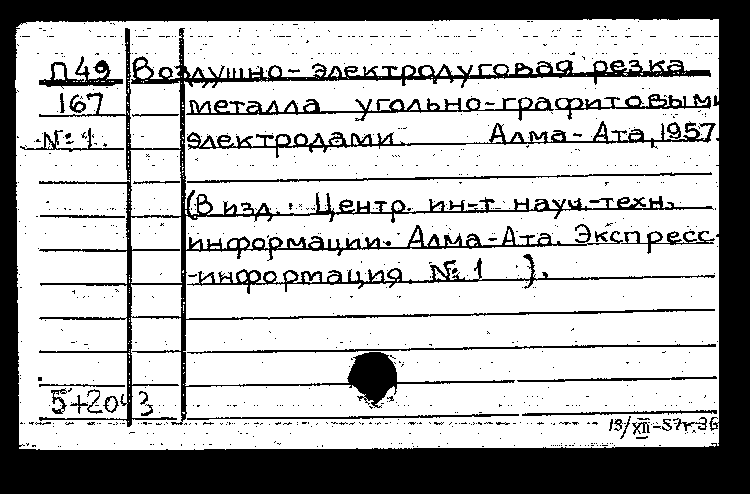 П49 Воздушно-электродуговая резка
167 металла угольно-графитовыми
№1. электродами. Алма-Ата, 1957.
(В изд.: Центр. ин-т науч.-техн.
информации. Алма-Ата. Экспресс-
-информация. № 1 ).
13/XII-57г.